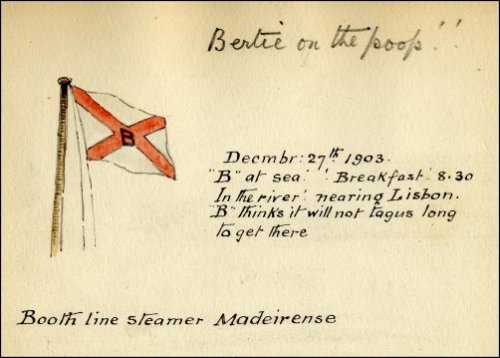 Bertie on the poop!!
B
Decmbr: 27th 1903.
"B" at sea! ' Breakfast 8.30
In the river! nearing Lisbon.
"B" thinks it will not tagus long
to get there
Booth line steamer Madeirense